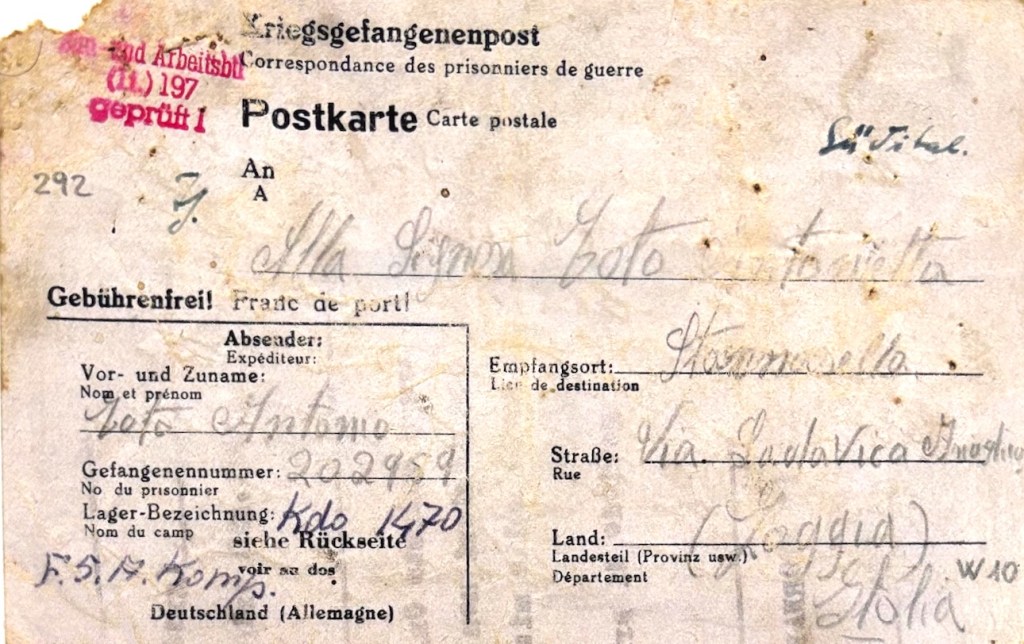 Kriegsgefangenenpost
Correspondance des prisonniers de guerre
und Arbeitsbtl
(11.) 197
geprüft 1
Postkarte Carte postale
Südital.
An
A
292
Alla Signora Zoto Antonietta
Gebührenfrei! Franc de port!
Absender:
Expéditeur:
Vor- und Zuname:
Nom et prénom
Zoto Antonio
Gefangenennummer: 202959
No du prisonnier
Lager-Bezeichnung: Kdo 1470
Nom du camp
siehe Rückseite
voir au dos
F. 5. A. Komp.
Deutschland (Allemagne)
Empfangsort: Stornarella
Lieu de destination
Straße: Via. Ludovica
Rue
Land: (Foggia)
Landesteil (Provinz usw.)
Département
W 10
Italia